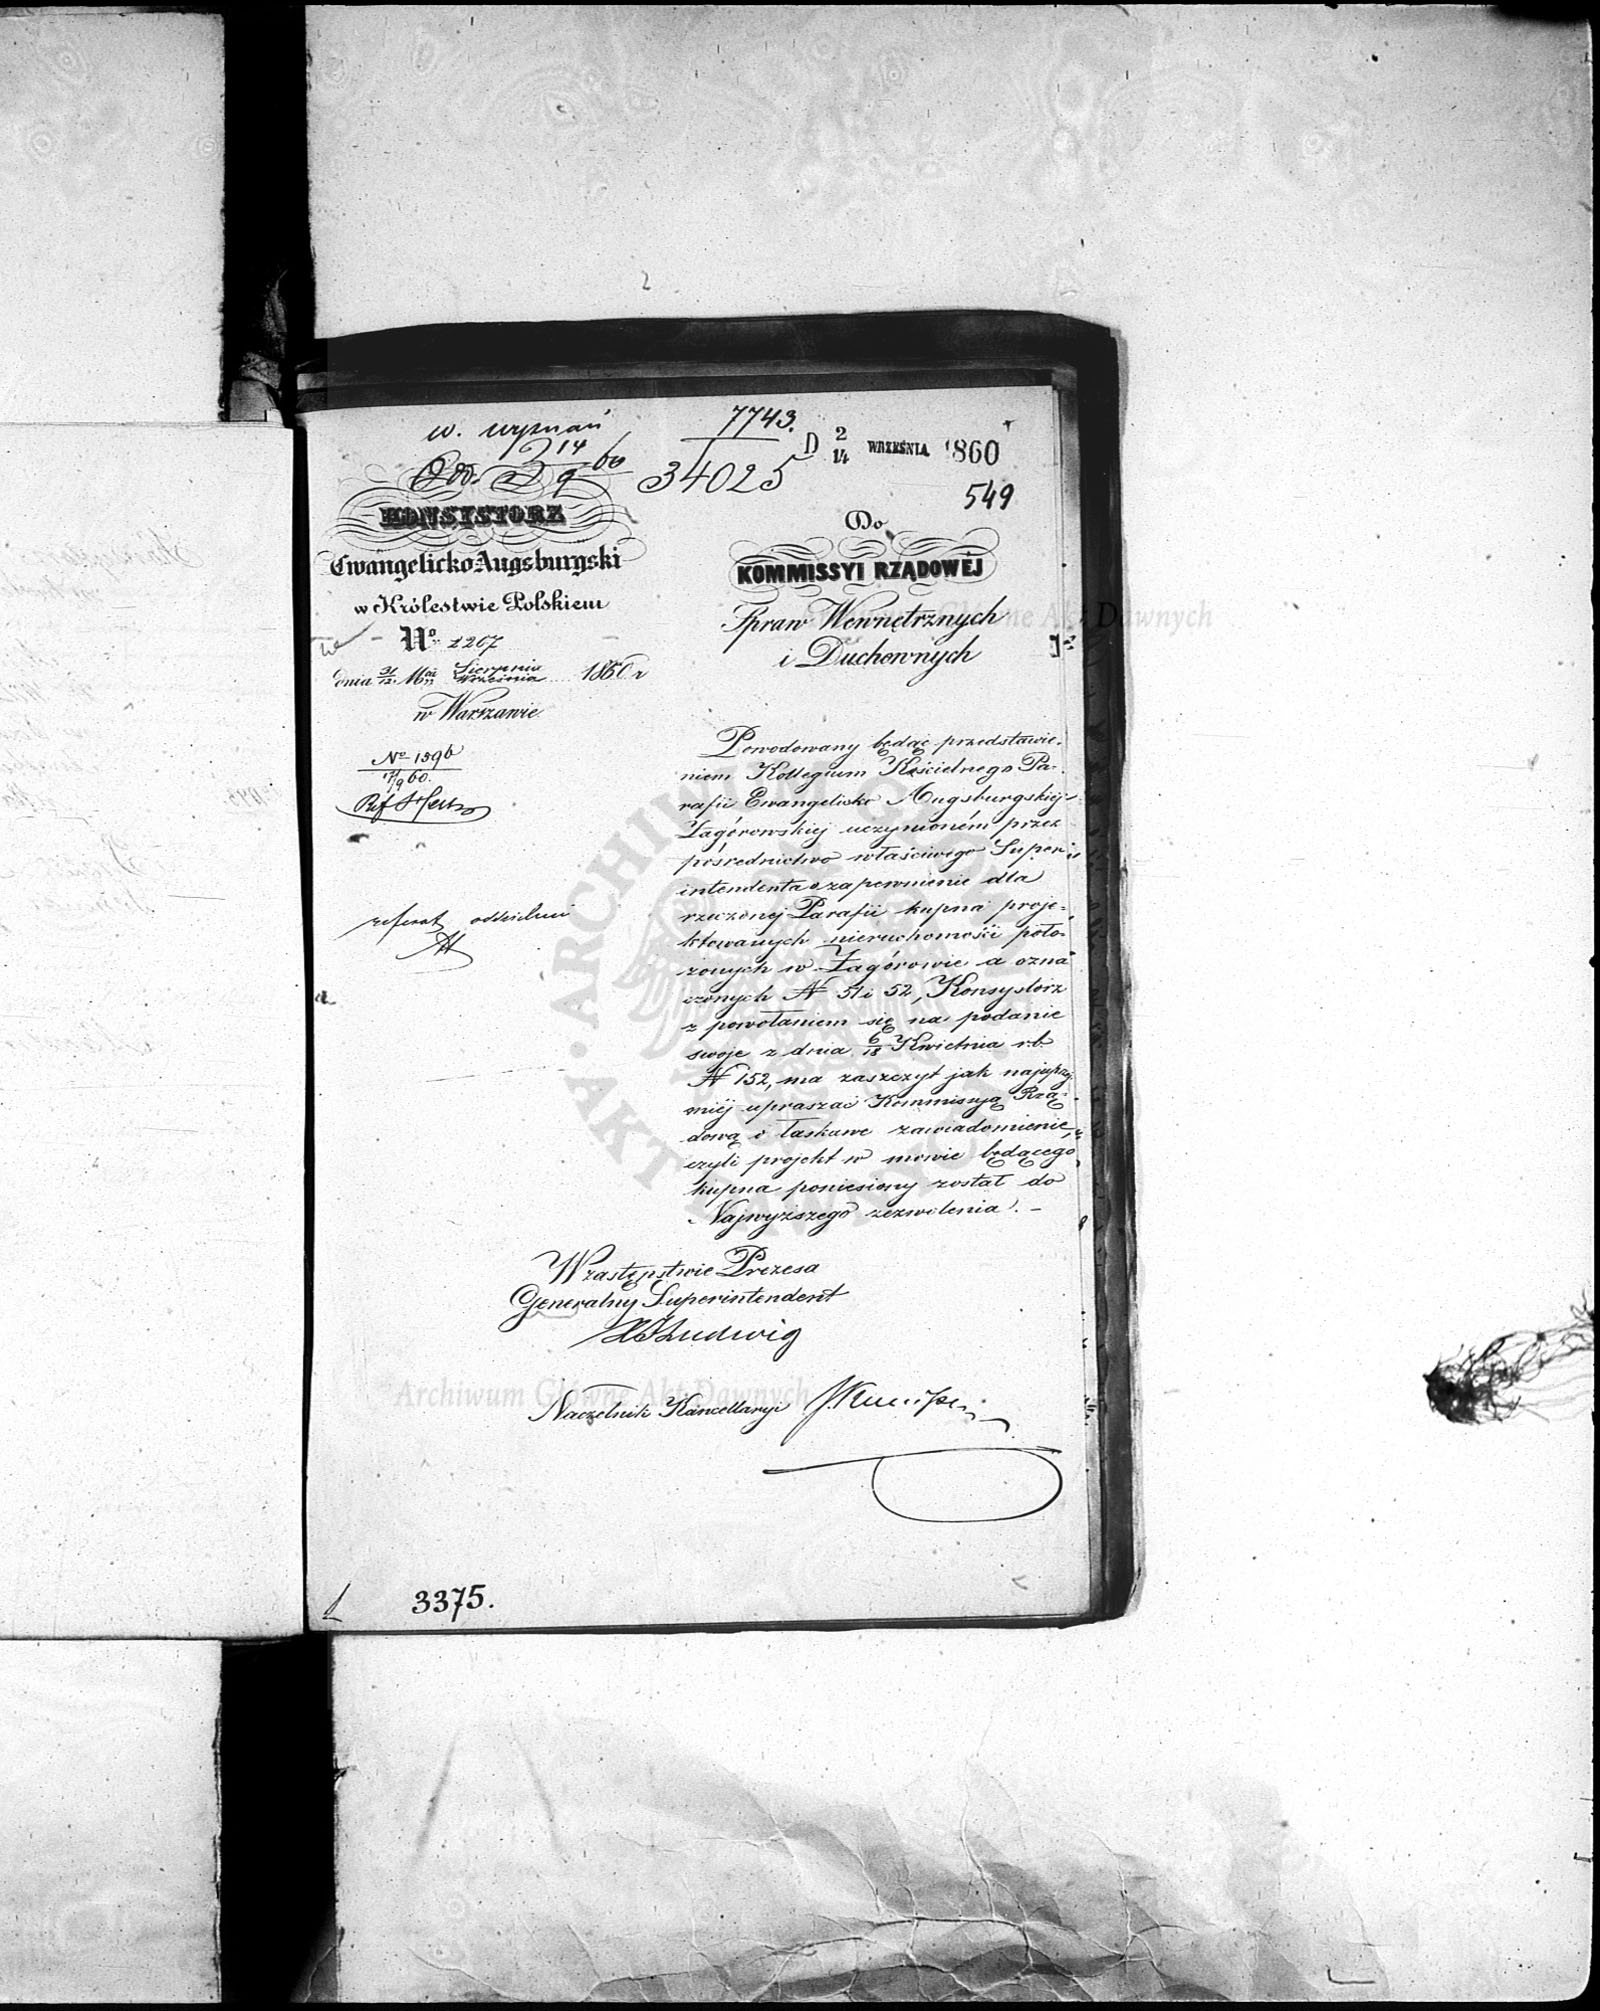 w. wyznań
7743.
34025
D 2/14 WRZEŚNIA 1860
549
14/9 60
KONSYSTORZ
Ewangelicko-Augsburgski
w Królestwie Polskiem
No 1267
dnia 31/12 Mca Sierpnia/Września 1860 r
w Warszawie
No 1596
17/9 60.
referat oddzielni
Do
KOMMISSYI RZĄDOWÉJ
Spraw Wewnętrznych
i Duchownych
Powodowany będąc przedstawie-
niem Kollegium Kościelnego Pa-
rafii Ewangelicko Augsburgskiéj
Zagórowskiej uczynioném przez
pośrednictwo właściwego Super-
intendenta o zapewnienie dla
rzeczonéj Parafii kupna proje-
ktowanych nieruchomości poło-
żonych w Zagórowie a ozna
czonych N 51 i 52, Konsystorz
z powołaniem się na podanie
swoje z dnia 6/18 Kwietnia r.b.
N 152, ma zaszczyt jak najuprzej
miéj upraszać Kommissyą Rzą-
dową o łaskawe zawiadomienie,
czyli projekt w mowie będącego
kupna poniesiony został do
Najwyższego zezwolenia. -
W zastępstwie Prezesa
Generalny Superintendent
Ludwig
Naczelnik Kancellaryi
3375.
Archiwum Główne Akt Dawnych
Archiwum Główne Akt Dawnych
ARCHIWUM
AKT